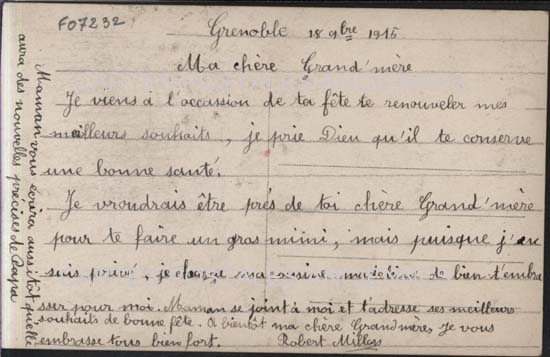 F07232
Grenoble 18 9bre 1915
Ma chère Grand'mère
Je viens à l'occassion de ta fête te renouveler mes
meilleurs souhaits, je prie Dieu qu'il te conserve
une bonne santé.
Je vroudrais être prés de toi chère Grand'mère
pour te faire un gros mimi, mais puisque j'en
suis privé, je charge ma cousine de bien t'embra
sser pour moi. Maman se joint à moi et t'adresse ses meilleurs
souhaits de bonne fête. A bientôt ma chère Grandmère, Je vous
embrasse tous bien fort. Robert
Maman vous écrira aussitôt quelle
aura des nouvelles précises de Papa